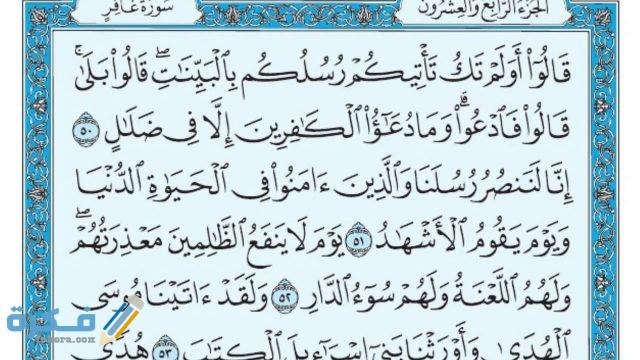 الجزء الرابع والعشرون
سورة غافر
قَالُوٓا۟ أَوَلَمْ تَكُ تَأْتِيكُمْ رُسُلُكُم بِالْبَيِّنَاتِ ۖ قَالُوا۟ بَلَىٰ ۚ
قَالُوا۟ فَادْعُوا۟ ۗ وَمَا دُعَـٰٓؤُا۟ الْكَـٰفِرِينَ إِلَّا فِى ضَلَـٰلٍ ٥٠
إِنَّا لَنَنصُرُ رُسُلَنَا وَالَّذِينَ ءَامَنُوا۟ فِى الْحَيَوٰةِ الدُّنْيَا
وَيَوْمَ يَقُومُ الْأَشْهَـٰدُ ٥١ يَوْمَ لَا يَنفَعُ الظَّـٰلِمِينَ مَعْذِرَتُهُمْ ۖ
وَلَهُمُ اللَّعْنَةُ وَلَهُمْ سُوٓءُ الدَّارِ ٥٢ وَلَقَدْ ءَاتَيْنَا مُوسَى
الْهُدَىٰ وَأَوْرَثْنَا بَنِىٓ إِسْرَٰٓءِيلَ الْكِتَـٰبَ ٥٣ هُدًى
فكرة